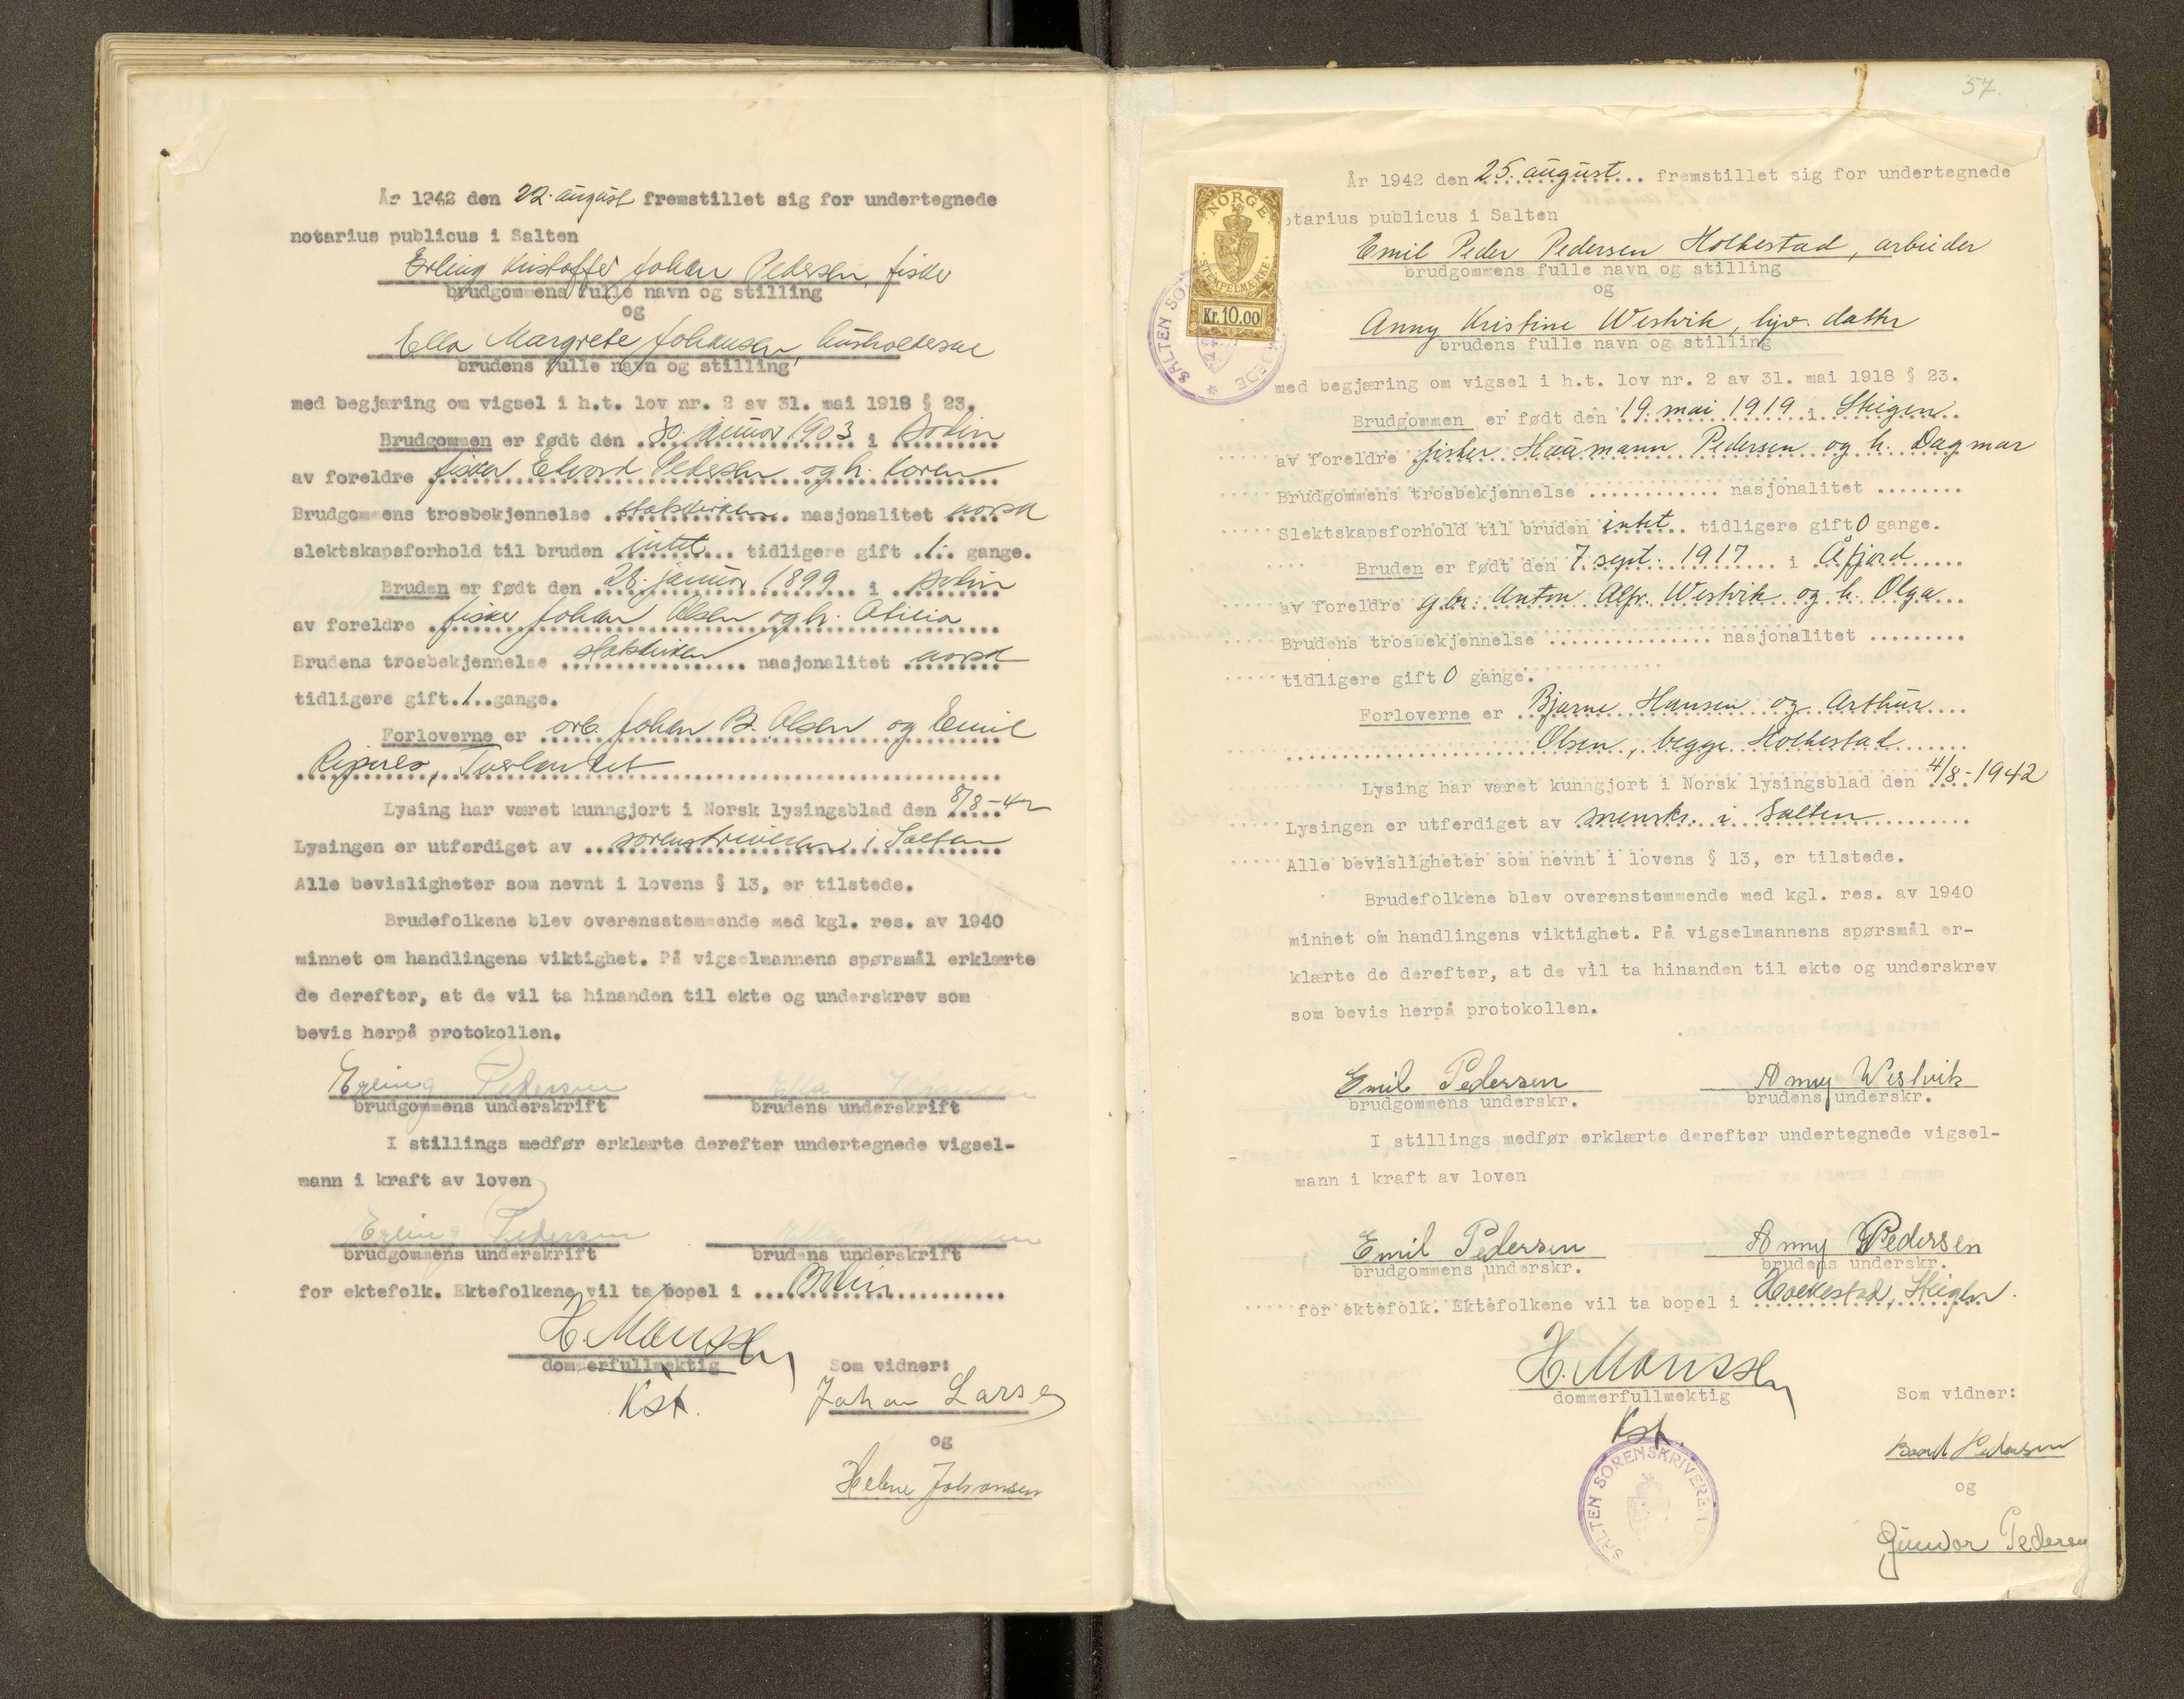 År 1942 den 22. august fremstillet sig for undertegnede
notarius publicus i Salten
Erling Kristoffer Johan Pedersen, fisker
brudgommens fulle navn og stilling
og
Ella Margrete Johansen, husholderske
brudens fulle navn og stilling
med begjæring om vigsel i h.t. lov nr. 2 av 31. mai 1918 § 23.
Brudgommen er født den 30. januar 1903 i Bodin
av foreldre fisker Edvard Pedersen og h. Karen
Brudgommens trosbekjennelse statskirken nasjonalitet norsk
slektskapsforhold til bruden intet tidligere gift 1 gange.
Bruden er født den 28. januar 1899 i Bodin
av foreldre fisker Johan Olsen og h. Otilia
Brudens trosbekjennelse statskirken nasjonalitet norsk
tidligere gift 1 gange.
Forloverne er arb. Johan B. Olsen og Emil
Lysing har været kunngjort i Norsk lysingsblad den 8/8-42
Lysingen er utferdiget av sorenskriveren i Salten
Alle bevisligheter som nevnt i lovens § 13, er tilstede.
Brudefolkene blev overensstemmende med kgl. res. av 1940
minnet om handlingens viktighet. På vigselmannens spørsmål erklærte
de derefter, at de vil ta hinanden til ekte og underskrev som
bevis herpå protokollen.
Erling Pedersen Ella Johansen
brudgommens underskrift brudens underskrift
I stillings medfør erklærte derefter undertegnede vigsel-
mann i kraft av loven
Erling Pedersen Ella Pedersen
brudgommens underskrift brudens underskrift
for ektefolk. Ektefolkene vil ta bopel i Bodin
dommerfullmektig Som vidner:
Kst. Johan Larsen
og
Helene Johansen
57.
NORGE
STEMPELMÆRKE
Kr. 10.00
År 1942 den 25. august fremstillet sig for undertegnede
otarius publicus i Salten
Emil Peder Pedersen Holkestad, arbeider
brudgommens fulle navn og stilling
og
Anny Kristine Westvik, hjv. datter
brudens fulle navn og stilling
med begjæring om vigsel i h.t. lov nr. 2 av 31. mai 1918 § 23.
Brudgommen er født den 19. mai 1919 i Steigen
av foreldre fisker Haumann Pedersen og h. Dagmar
Brudgommens trosbekjennelse ............ nasjonalitet ........
Slektskapsforhold til bruden intet tidligere gift 0 gange.
Bruden er født den 7. sept. 1917 i Åfjord
av foreldre gbr. Anton Alfr. Westvik og h. Olga
Brudens trosbekjennelse ............... nasjonalitet .........
tidligere gift 0 gange.
Forloverne er Bjarne Hansen og Arthur
Olsen, begge Holkestad
Lysing har været kunngjort i Norsk lysingsblad den 4/8-1942
Lysingen er utferdiget av sorenskr. i Salten
Alle bevisligheter som nevnt i lovens § 13, er tilstede.
Brudefolkene blev overenstemmende med kgl. res. av 1940
minnet om handlingens viktighet. På vigselmannens spørsmål er-
klærte de derefter, at de vil ta hinanden til ekte og underskrev
som bevis herpå protokollen.
Emil Pedersen Anny Westvik
brudgommens underskr. brudens underskr.
I stillings medfør erklærte derefter undertegnede vigsel-
mann i kraft av loven
Emil Pedersen Anny Pedersen
brudgommens underskr. brudens underskr.
for ektefolk. Ektefolkene vil ta bopel i Holkestad, Steigen.
dommerfullmektig Som vidner:
Kst.
SALTEN SORENSKRIVERE
Pedersen
og
Gunvor Pedersen